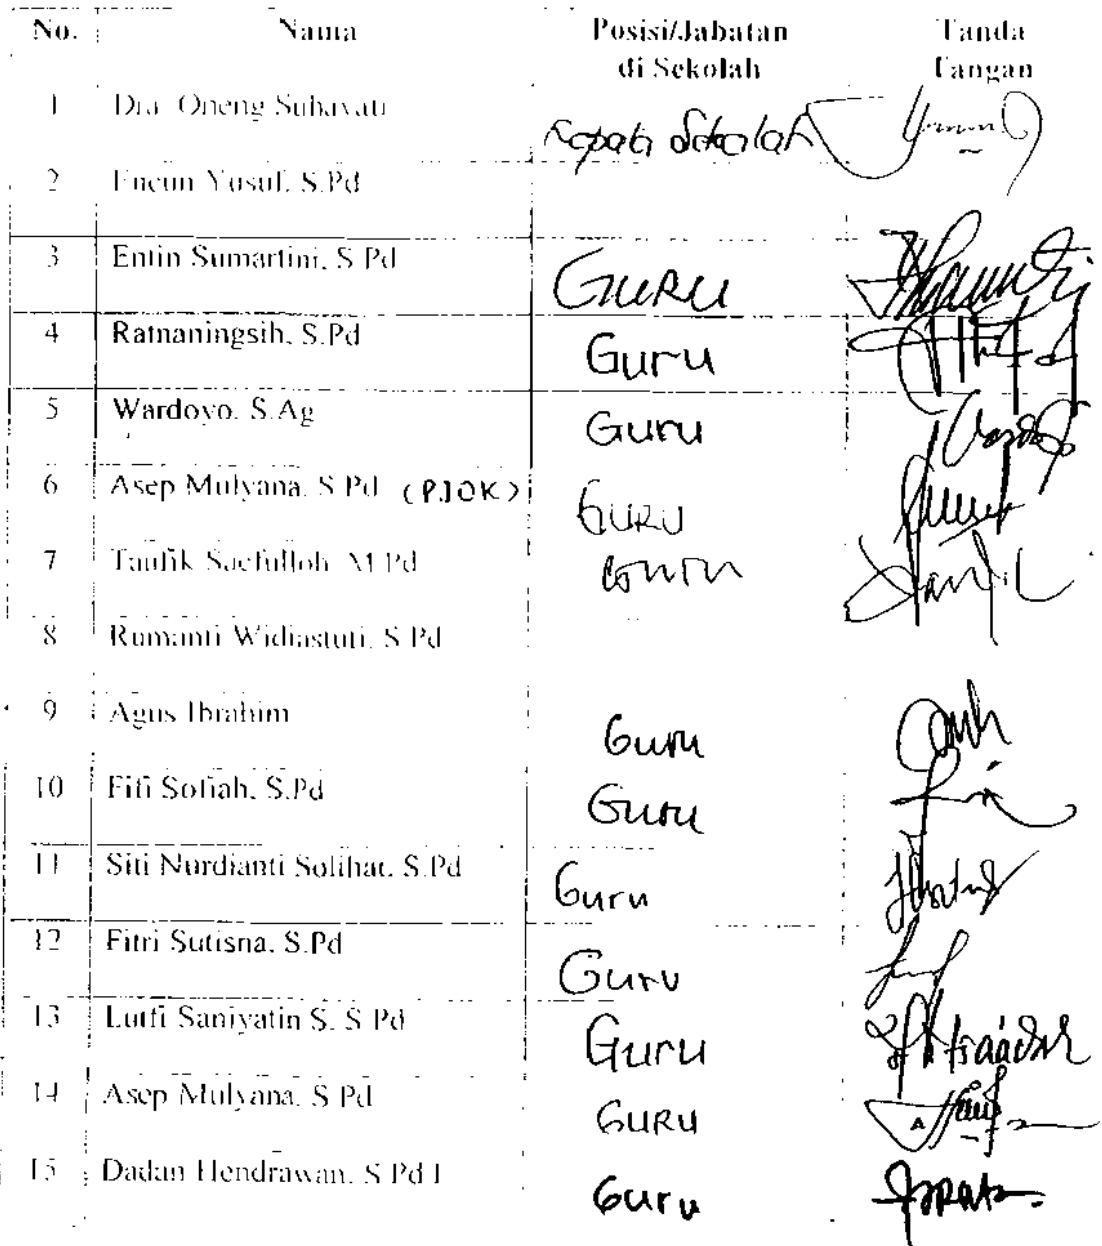 No. Nama Posisi/Jabatan Tanda
di Sekolah Tangan
1 Dra. Oneng Suhayati Kepala Sekolah
2 Encun Yusuf, S.Pd
3 Entin Sumartini, S.Pd GURU
4 Ratnaningsih, S.Pd Guru
5 Wardoyo, S.Ag Guru
6 Asep Mulyana, S.Pd (PJOK) GURU
7 Taufik Saefulloh, M.Pd Guru
8 Rumanti Widiastuti, S.Pd
9 Agus Ibrahim Guru
10 Fifi Sofiah, S.Pd Guru
11 Siti Nurdianti Solihat, S.Pd Guru
12 Fitri Sutisna, S.Pd Guru
13 Lutfi Saniyatin S, S.Pd Guru
14 Asep Mulyana, S.Pd GURU
15 Dadan Hendrawan, S.Pd.I Guru